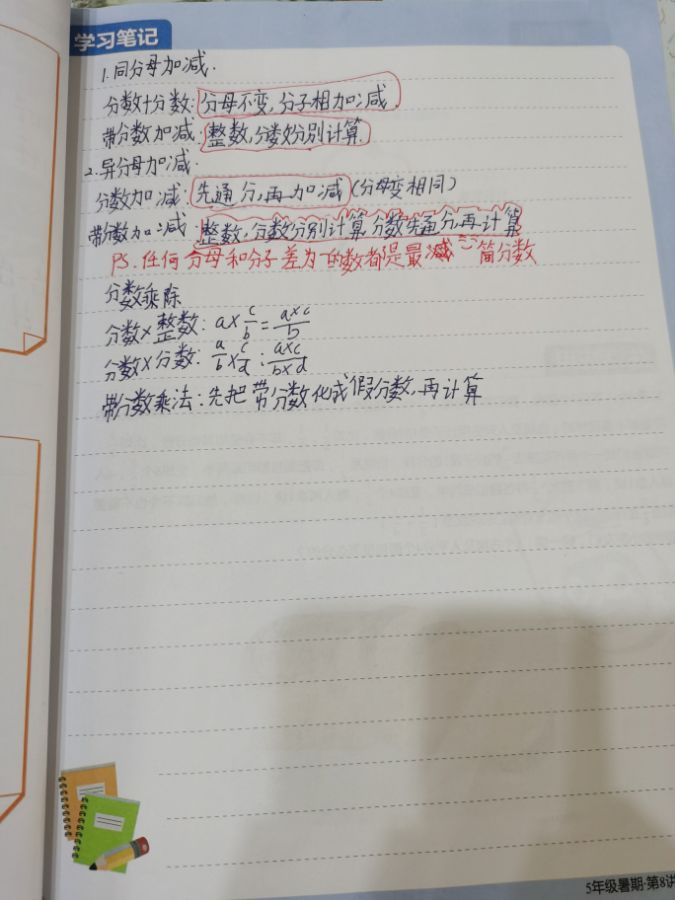 学习笔记
1.同分母加减.
分数+分数:分母不变,分子相加减.
带分数加减:整数,分数分别计算.
2.异分母加减.
分数加减:先通分,再加减(分母变相同)
带分数加减:整数,分数分别计算 分数先通分,再计算
PS.任何分母和分子差为一的数都是最 简分数
分数乘除
分数×整数: a×c/b=a×c/b
分数×分数: a/b×c/d:a×c/b×d
带分数乘法:先把带分数化成假分数,再计算
5年级暑期·第8讲